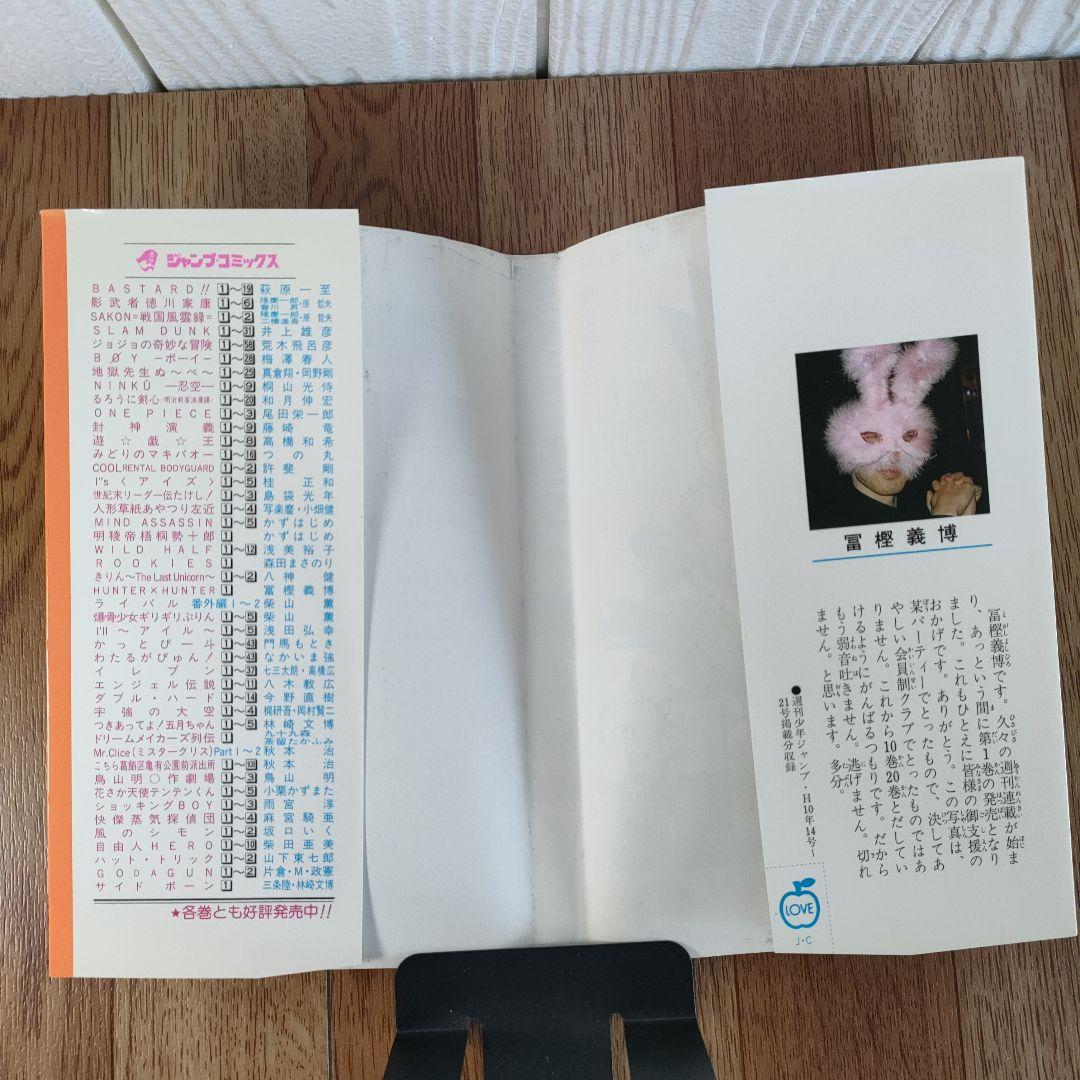 ジャンプ・コミックス
BASTARD!! 1〜19 萩原一至
影武者徳川家康 1〜6 隆慶一郎・會川昇・原哲夫
SAKON=戦国風雲録= 1〜2 隆慶一郎・二橋進吾・原哲夫
SLAM DUNK 1〜31 井上雄彦
ジョジョの奇妙な冒険 1〜58 荒木飛呂彦
BØY —ボーイ— 1〜28 梅澤春人
地獄先生ぬ〜べ〜 1〜29 真倉翔・岡野剛
NINKŪ —忍空— 1〜9 桐山光侍
るろうに剣心 -明治剣客浪漫譚- 1〜20 和月伸宏
ONE PIECE 1〜3 尾田栄一郎
封神演義 1〜9 藤崎竜
遊☆戯☆王 1〜8 高橋和希
みどりのマキバオー 1〜16 つの丸
COOL RENTAL BODYGUARD 1〜2 許斐剛
I"s〈アイズ〉 1〜5 桂正和
世紀末リーダー伝たけし! 1〜3 島袋光年
人形草紙あやつり左近 1〜4 写楽麿・小畑健
MIND ASSASSIN 1〜5 かずはじめ
明稜帝梧桐勢十郎 1 かずはじめ
WILD HALF 1〜12 浅美裕子
ROOKIES 1 森田まさのり
きりん〜The Last Unicorn〜 1〜2 八神健
HUNTER×HUNTER 1 冨樫義博
ライバル 番外編1〜2 柴山薫
爆骨少女ギリギリぷりん 1〜5 柴山薫
I'll 〜アイル〜 1〜5 浅田弘幸
かっとび一斗 1〜43 門馬もとき
わたるがぴゅん! 1〜43 なかいま強
イレブン 1〜37 七三太朗・高橋広
エンジェル伝説 1〜11 八木教広
ダブル・ハード 1〜14 今野直樹
宇強の大空 1〜4 梶研吾・岡村賢二
つきあってよ!五月ちゃん 1〜5 林崎文博
ドリームメイカーズ列伝 1 九十九森・茶留たかふみ
Mr.Clice(ミスタークリス) Part1〜2 秋本治
こちら葛飾区亀有公園前派出所 秋本治
鳥山明○作劇場 1〜3 鳥山明
花さか天使テンテンくん 1〜5 小栗かずまた
ショッキングBOY 1〜3 雨宮淳
快傑蒸気探偵団 1〜4 麻宮騎亜
風のシモン 1〜2 坂口いく
自由人HERO 1〜10 柴田亜美
ハット・トリック 1〜2 山下東七郎
GODAGUN 1〜2 片倉・M・政憲
サイドボーン 1 三条陸・林崎文博
★各巻とも好評発売中!!
冨樫義博
冨樫義博です。久々の週刊連載が始ま
り、あっという間に第1巻の発売となり
ました。これもひとえに皆様の御支援の
おかげです。ありがとう。この写真は、
某パーティーでとったもので、決してあ
やしい会員制クラブでとったものではあ
りません。これから10巻20巻とだしてい
けるようにがんばるつもりです。だから
もう弱音吐きません。逃げません。切れ
ません。と思います。多分。
●週刊少年ジャンプ・H10年14号〜
21号掲載分収録
LOVE
J・C